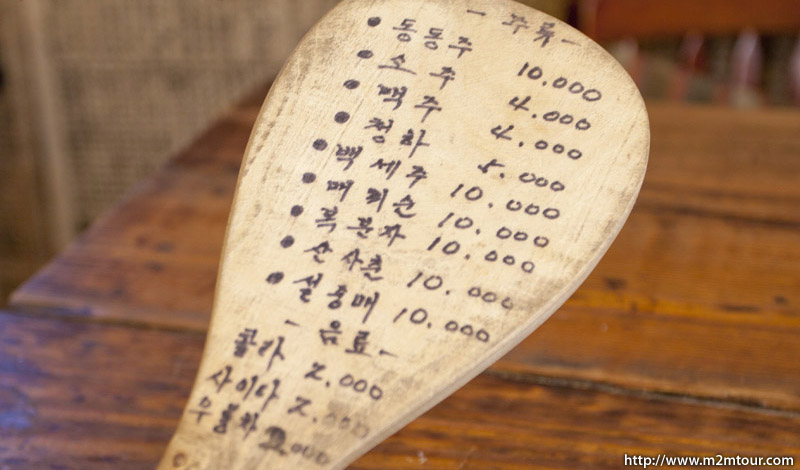 - 주류 -
● 동동주 10.000
● 소주 4.000
● 맥주 4.000
● 청하 5.000
● 백세주 10.000
● 매취순 10.000
● 복분자 10.000
● 산사춘 10.000
● 설중매 10.000
- 음료 -
콜라 2.000
사이다 2.000
우롱차 2.000
http://www.m2mtour.com